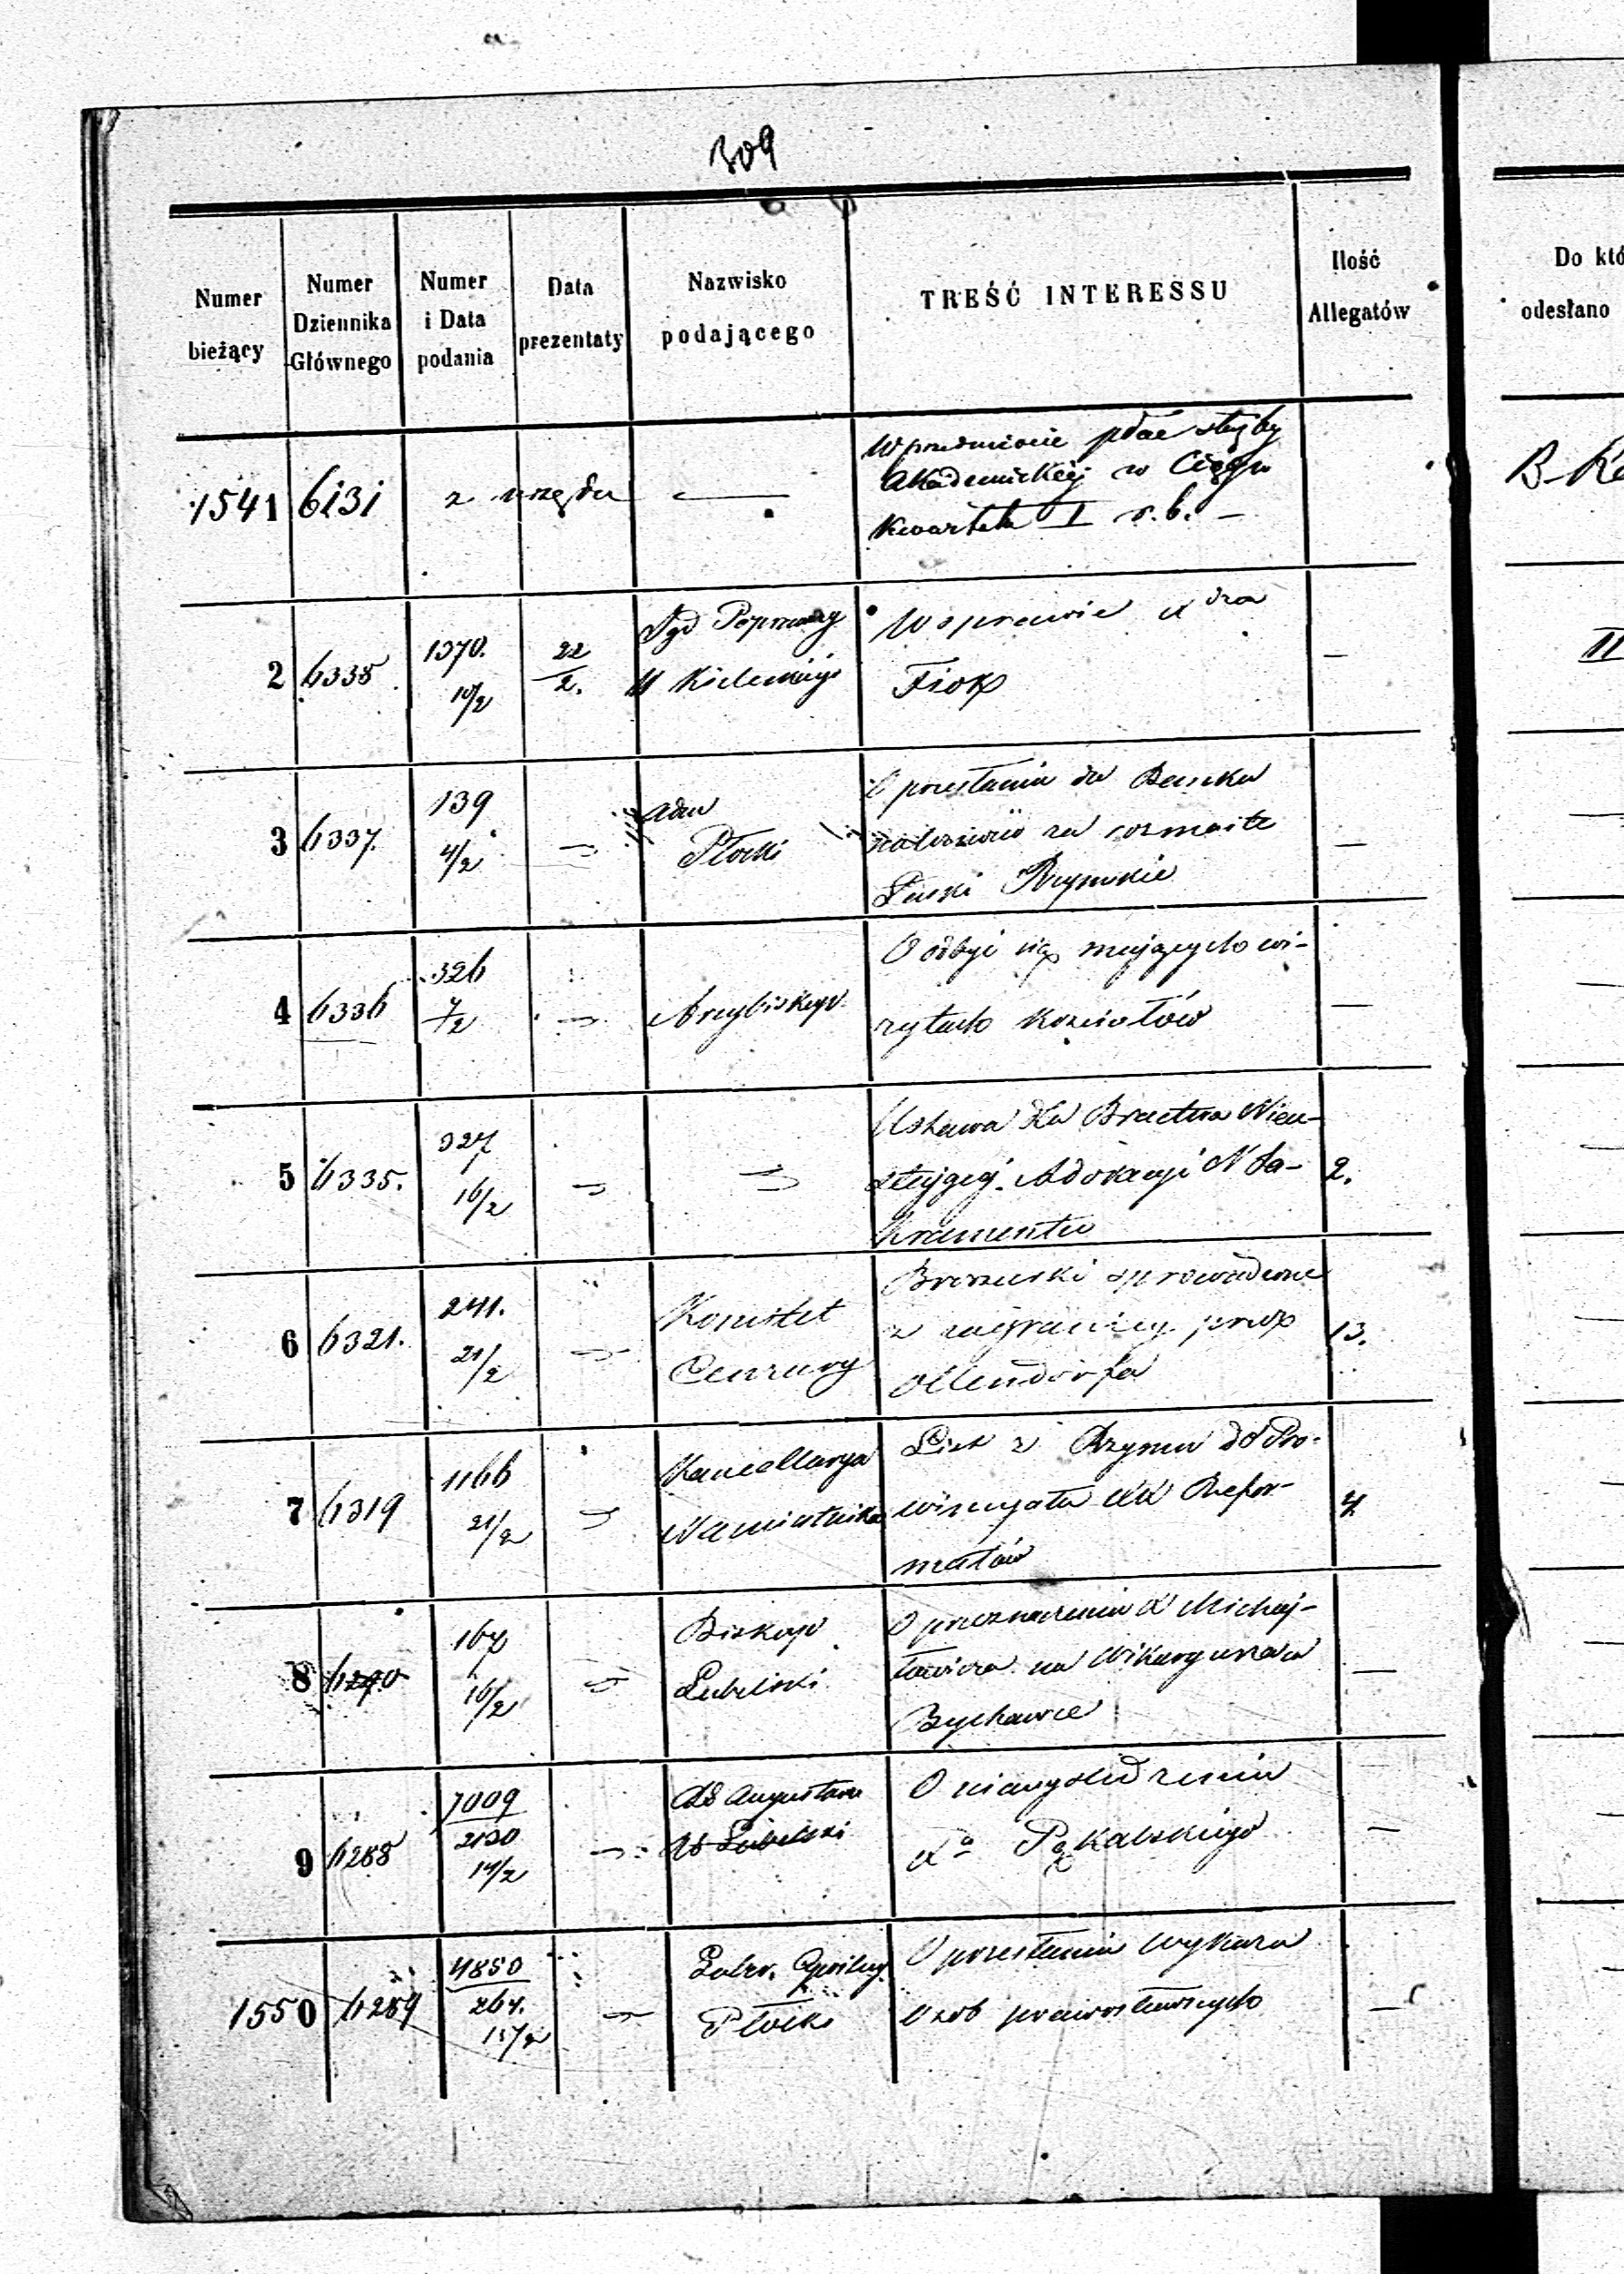 309
Numer bieżący
Numer Dziennika Głównego
Numer i Data podania
Data prezentaty
Nazwisko podającego
TREŚĆ INTERESSU
Ilość Allegatów
Do któ
odesłano
1541 6131 z urzędu —
W przedmiocie płac służby
Akademickiej w Ciągu
Kwartału I r.b. –
B.
2 6338 1370. 10/2 22/2.
Sąd Poprawczy
W Kieleckiego
W sprawie X dza
Fiok
—
II
3 6337. 139 4/2
Adm
Płocki
O przesłaniu do Banku
należności za rozmaite
Łaski Rzymskie
—
4 6336 326 7/2
Arcybiskup
O odbyć się mających wi-
zytach Kościołów
—
5 6335. 327 16/2
Ustawa dla Bractwa Nieu-
stającej Adoracyi N Sa-
kramentu
2.
6 6321. 241. 21/2
Komitet
Cenzury
Broszurki sprowadzone
z zagranicy przez
Ollendorfa
13.
7 6319 1166 21/2
Kancellarya
Namiestnika
List z Rzymu do Pro-
wincyała XX Refor-
matów
4
8 6290 167 16/2
Biskup
Lubelski
O przeznaczeniu X Michaj-
łowicza na Wikaryusza w
Bychawce
—
9 6288 7009 2130 14/2
Lubelski
O niewyśledzeniu
Xa Pękalskiego
—
1550 6289 4850 264. 13/2
Płocki
O przesłaniu wykazu
Osób prawosławnych
—